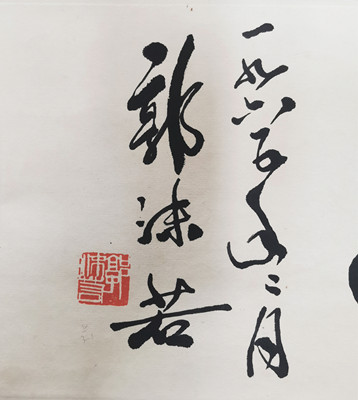 一九六五年二月
郭沫若
郭沫若